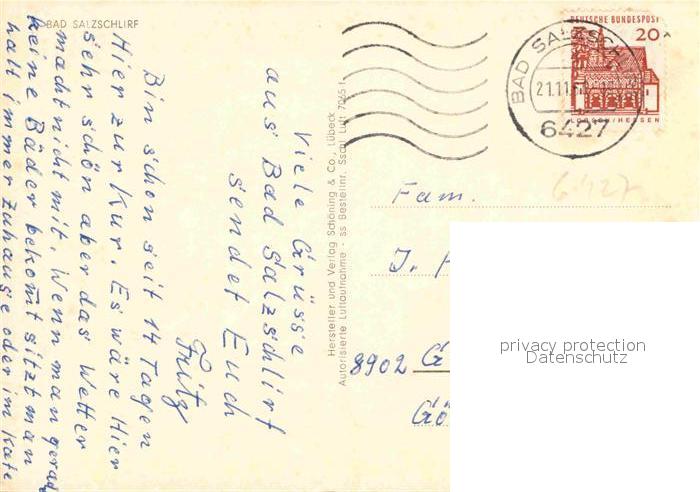 BAD SALZSCHLIRF
Viele Grüsse
aus Bad Salzschlirf
sendet Euch
Fritz
Bin schon seit 14 Tagen
Hier zur Kur. Es wäre Hier
sehr schön aber das Wetter
macht nicht mit. Wenn man gerad
keine Bäder bekomt sitzt man
halt immer zuhause oder im Kafe
Hersteller und Verlag Schöning & Co., Lübeck
Autorisierte Luftaufnahme - ss Bestellnr. Sschl Luft
BAD SALZSCH
21.11.6
6427
DEUTSCHE BUNDESPOST
20
LORSCH/HESSEN
6427
Fam.
J.
8902 G
Gö
privacy protection
Datenschutz